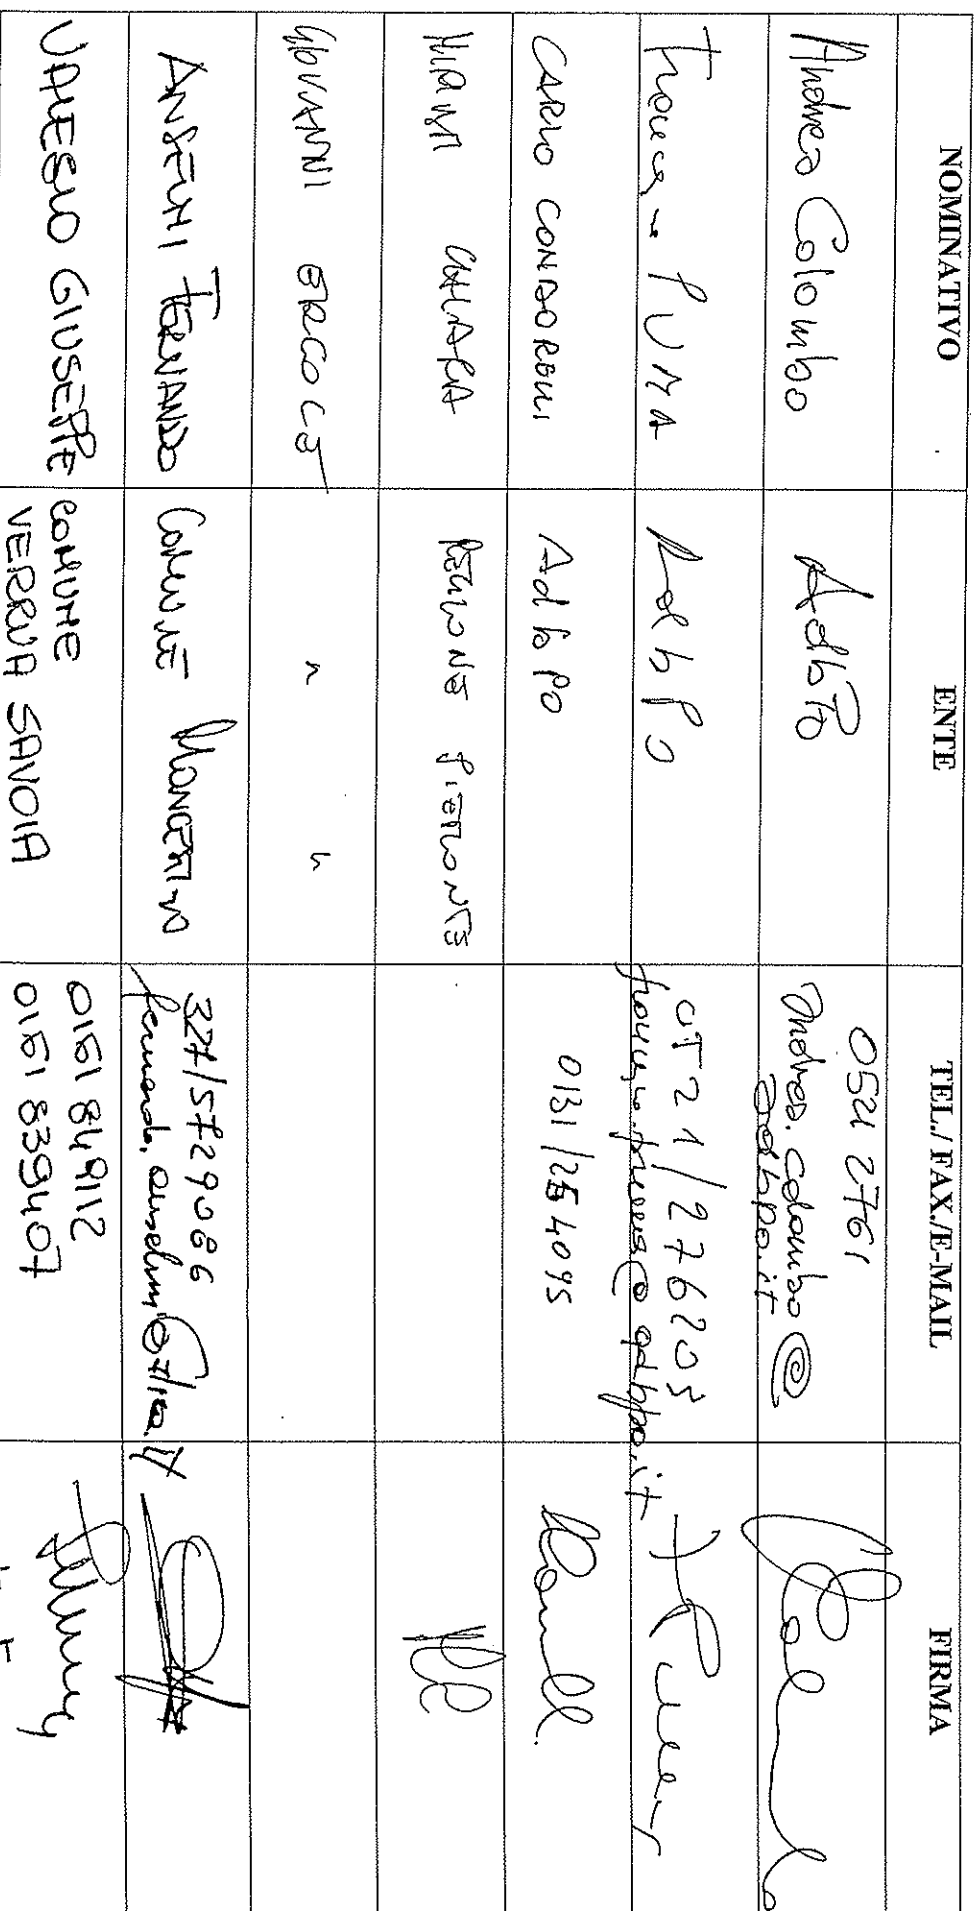 NOMINATIVO ENTE TEL./ FAX./E-MAIL FIRMA
Andrea Colombo AdbPo 0521 2761
andrea.colombo@
adbpo.it
PUMA AdbPo 0521/276203
@adbpo.it
CARLO CONDORELLI AdbPo 0131/254095
CHIARA REGIONE PIEMONTE
GIOVANNI ERCOLE " "
ANSELMI FERNANDO COMUNE MONCESTINO 327/5729066
fernando.anselmi@
VALESIO GIUSEPPE COMUNE 0161 849112
VERRUA SAVOIA 0161 839407